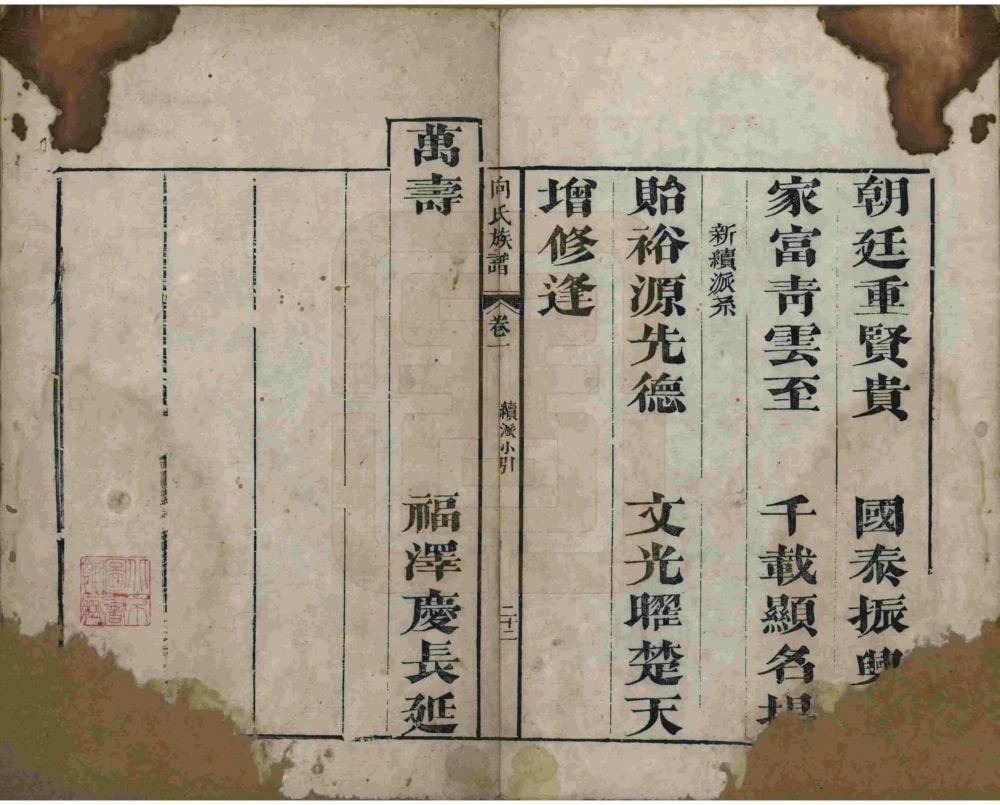 朝廷重賢貴　國泰振興
家富青雲至　千載顯名揚
新續派系
貽裕源先德　文光曜楚天
增修逢
向氏族譜　卷一　續派小引　二十二
萬壽　福澤慶長延